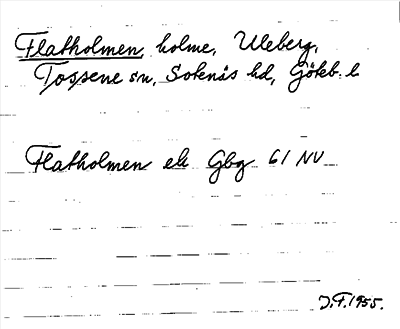 Flatholmen, holme, Uleberg,
Tossene sn, Sotenäs hd, Göteb. l
Flatholmen ek Gbg 61 NV
J.F. 1955.